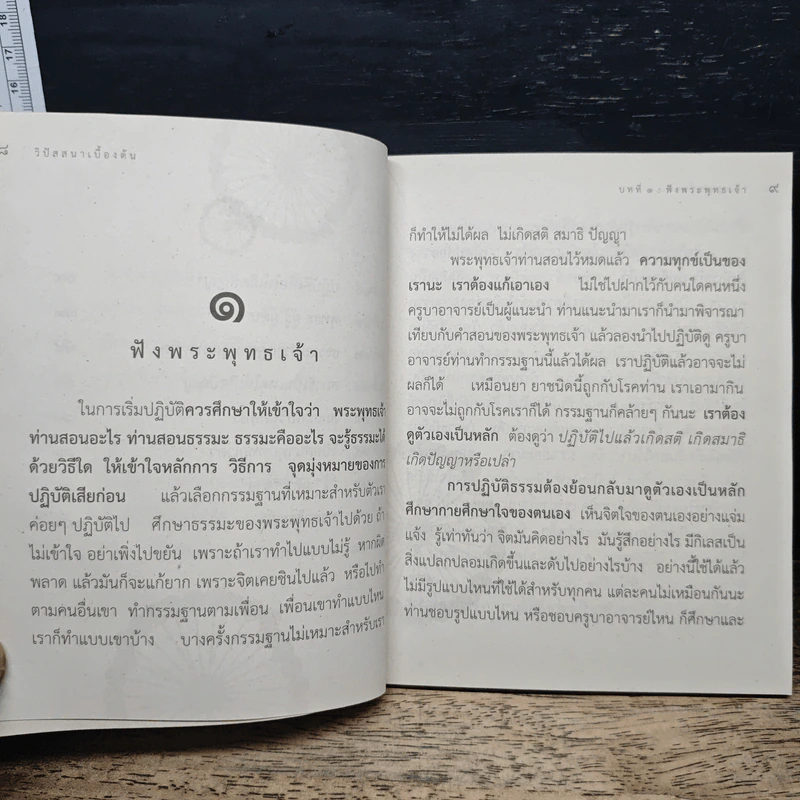 18
17
16
๘ วิปัสสนาเบื้องต้น
๑
ฟังพระพุทธเจ้า
ในการเริ่มปฏิบัติควรศึกษาให้เข้าใจว่า พระพุทธเจ้า
ท่านสอนอะไร ท่านสอนธรรมะ ธรรมะคืออะไร จะรู้ธรรมะได้
ด้วยวิธีใด ให้เข้าใจหลักการ วิธีการ จุดมุ่งหมายของการ
ปฏิบัติเสียก่อน แล้วเลือกกรรมฐานที่เหมาะสำหรับตัวเรา
ค่อยๆ ปฏิบัติไป ศึกษาธรรมะของพระพุทธเจ้าไปด้วย ถ้า
ไม่เข้าใจ อย่าเพิ่งไปขยัน เพราะถ้าเราทำไปแบบไม่รู้ หากผิด
พลาด แล้วมันก็จะแก้ยาก เพราะจิตเคยชินไปแล้ว หรือไปทำ
ตามคนอื่นเขา ทำกรรมฐานตามเพื่อน เพื่อนเขาทำแบบไหน
เราก็ทำแบบเขาบ้าง บางครั้งกรรมฐานไม่เหมาะสำหรับเรา
บทที่ ๑ : ฟังพระพุทธเจ้า ๙
ก็ทำให้ไม่ได้ผล ไม่เกิดสติ สมาธิ ปัญญา
พระพุทธเจ้าท่านสอนไว้หมดแล้ว ความทุกข์เป็นของ
เรานะ เราต้องแก้เอาเอง ไม่ใช่ไปฝากไว้กับคนใดคนหนึ่ง
ครูบาอาจารย์เป็นผู้แนะนำ ท่านแนะนำมาเราก็นำมาพิจารณา
เทียบกับคำสอนของพระพุทธเจ้า แล้วลองนำไปปฏิบัติดู ครูบา
อาจารย์ท่านทำกรรมฐานนี้แล้วได้ผล เราปฏิบัติแล้วอาจจะไม่
ผลก็ได้ เหมือนยา ยาชนิดนี้ถูกกับโรคท่าน เราเอามากิน
อาจจะไม่ถูกกับโรคเราก็ได้ กรรมฐานก็คล้ายๆ กันนะ เราต้อง
ดูตัวเองเป็นหลัก ต้องดูว่า ปฏิบัติไปแล้วเกิดสติ เกิดสมาธิ
เกิดปัญญาหรือเปล่า
การปฏิบัติธรรมต้องย้อนกลับมาดูตัวเองเป็นหลัก
ศึกษากายศึกษาใจของตนเอง เห็นจิตใจของตนเองอย่างแจ่ม
แจ้ง รู้เท่าทันว่า จิตมันคิดอย่างไร มันรู้สึกอย่างไร มีกิเลสเป็น
สิ่งแปลกปลอมเกิดขึ้นและดับไปอย่างไรบ้าง อย่างนี้ใช้ได้แล้ว
ไม่มีรูปแบบไหนที่ใช้ได้สำหรับทุกคน แต่ละคนไม่เหมือนกันนะ
ท่านชอบรูปแบบไหน หรือชอบครูบาอาจารย์ไหน ก็ศึกษาและ